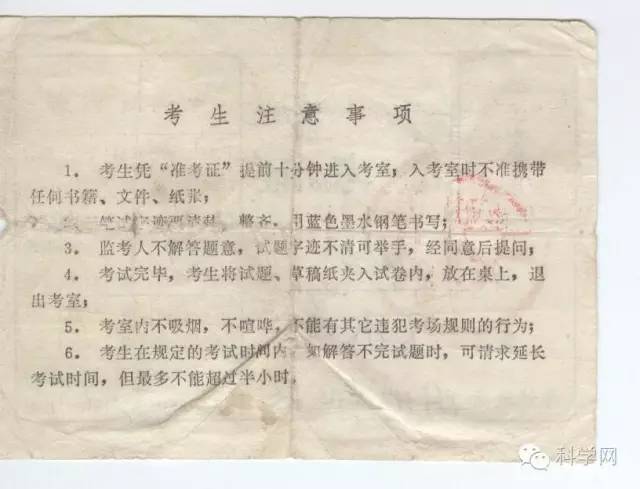 考生注意事项
1. 考生凭“准考证”提前十分钟进入考室；入考室时不准携带
任何书籍、文件、纸张；
笔试字迹要清 整齐，用蓝色墨水钢笔书写；
3. 监考人不解答题意，试题字迹不清可举手，经同意后提问；
4. 考试完毕，考生将试题、草稿纸夹入试卷内，放在桌上，退
出考室；
5. 考室内不吸烟，不喧哗，不能有其它违犯考场规则的行为；
6. 考生在规定的考试时间内，如解答不完试题时，可请求延长
考试时间，但最多不能超过半小时。
科学网